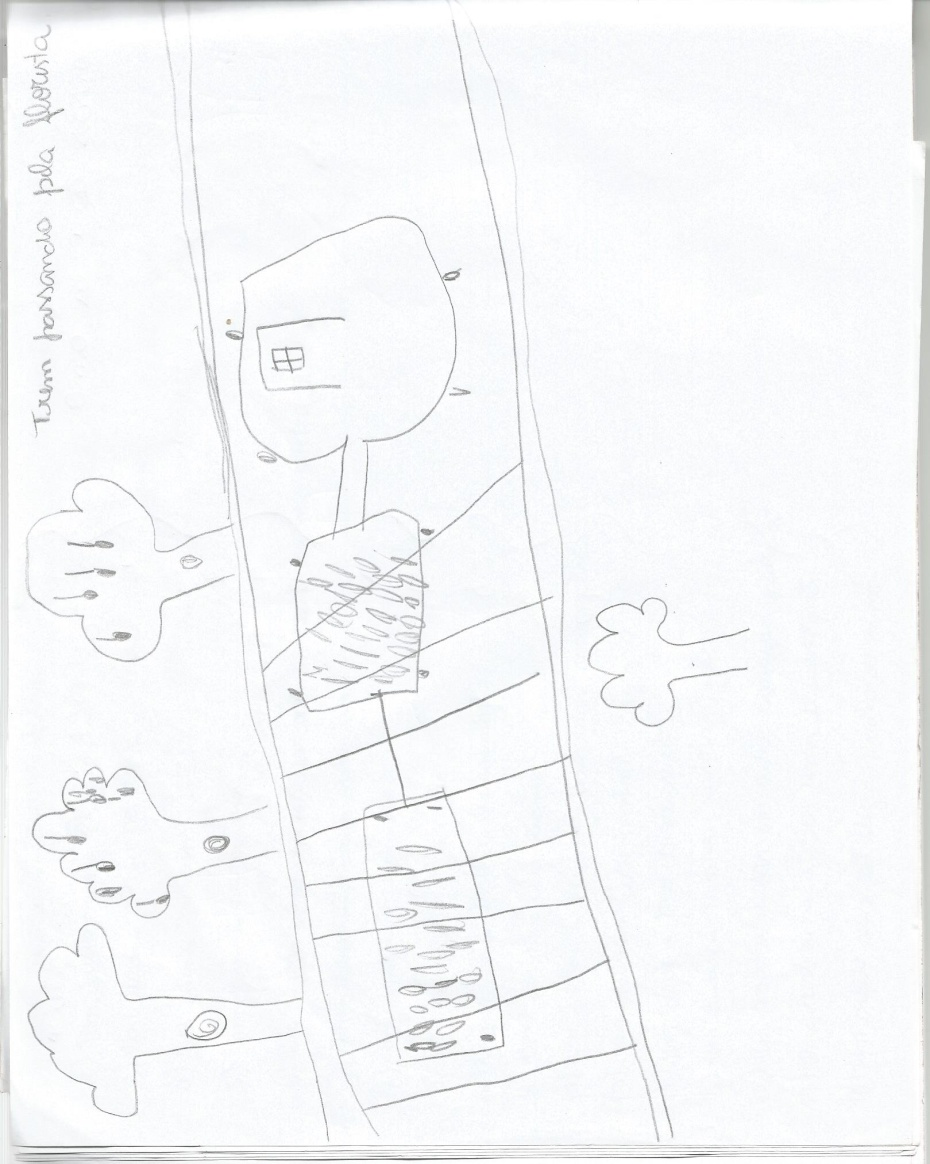 Trem passando pela floresta